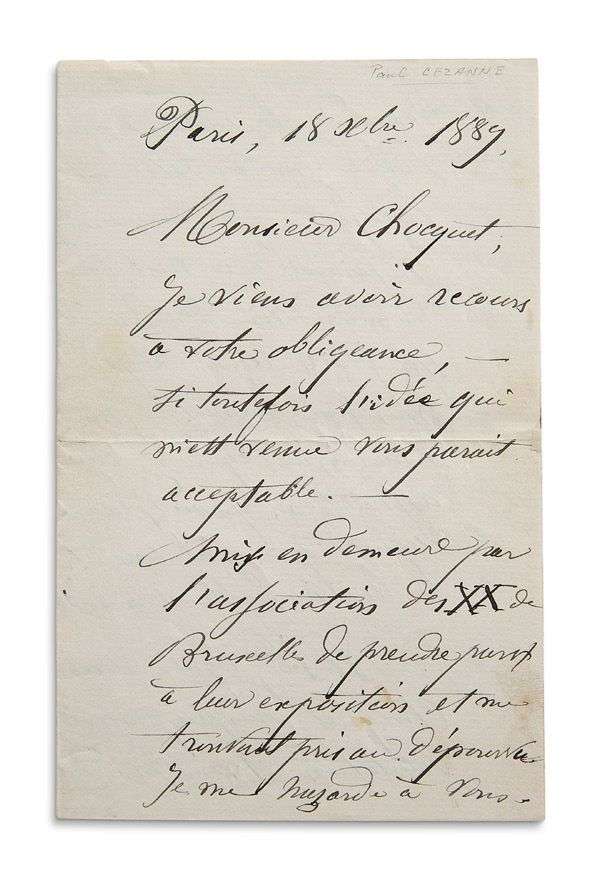 Paul CEZANNE
Paris, 18 Xbre 1889,
Monsieur Chocquet,
Je viens avoir recours
à votre obligeance, —
si toutefois l'idée qui
m'est venue vous parait
acceptable. —
Mis en demeure par
l'association des XX de
Bruxelles de prendre part
à leur exposition et me
trouvant pris au dépourvu
Je me hazarde à vous